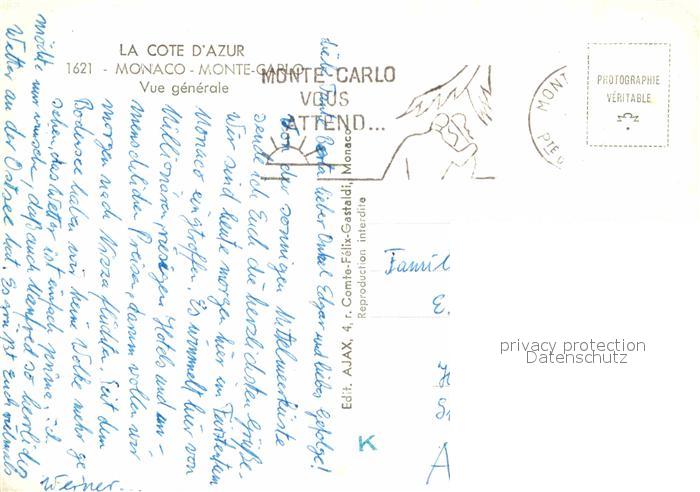 LA COTE D'AZUR
1621 - MONACO - MONTE-CARLO
Vue générale
MONTE-CARLO
VOUS
ATTEND...
MONT
PTE
PHOTOGRAPHIE
VÉRITABLE
Liebe Tante Berta, lieber Onkel Edgar und liebes Gefolge!
Von der sonnigen Mittelmeerküste
sende ich Euch die herzlichsten Grüße.
Wir sind heute morgen hier im Fürstentum
Monaco eingtroffen. Es wimmelt hier von
Millionären, riesigen Hotels und un-
menschlichen Preisen, darum wollen wir
morgen nach Nizza flüchten. Seit dem
Bodensee haben wir keine Wolke mehr ge
sehen, das Wetter ist einfach prima. Ich
möchte nur wünschen, daß auch Manfred so herrliches
Wetter an der Ostsee hat. Es grüßt Euch vielmals
Werner...
Edit. AJAX, 4, r. Comte-Félix-Gastaldi, Monaco
Reproduction interdite
Famil
E.
A
K
privacy protection
Datenschutz